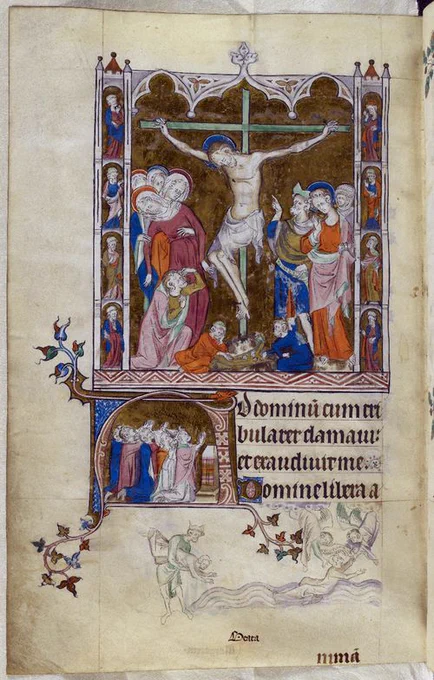 AD dominū cum tri
bularer clamaui:
et exaudiuit me.
Domine libera a
nimā